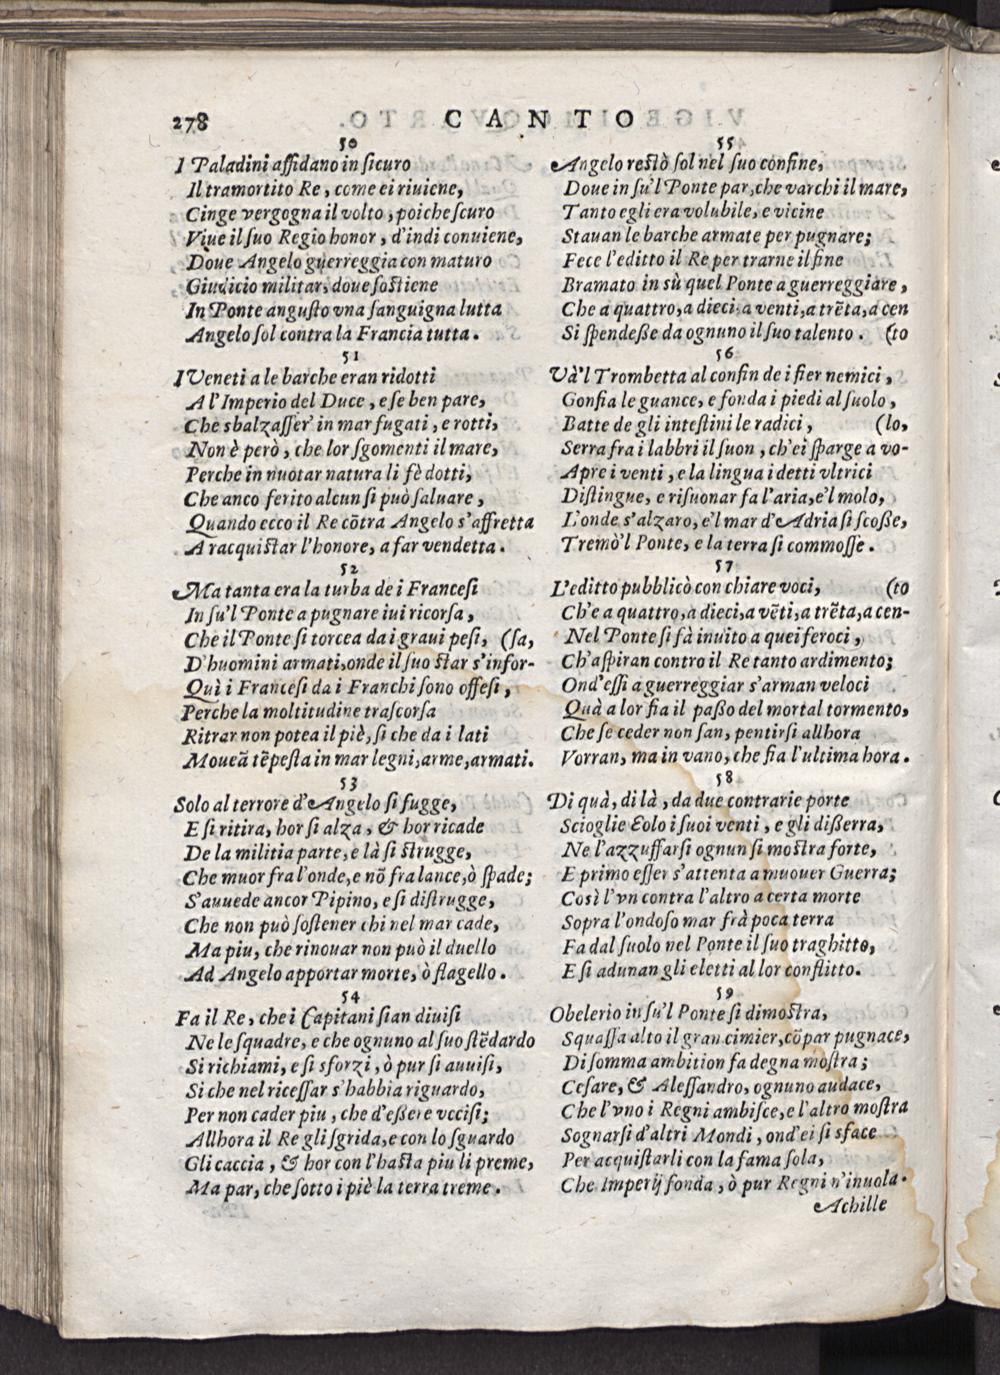 278 CANTO
50
I Paladini affidano in ſicuro
Il tramortito Re, come ei riuiene,
Cinge vergogna il volto, poiche ſcuro
Viue il ſuo Regio honor, d'indi conuiene,
Doue Angelo guerreggia con maturo
Giudicio militar, doue ſoſtiene
In Ponte anguſto vna ſanguigna lutta
Angelo ſol contra la Francia tutta.
51
I Veneti a le barche eran ridotti
A l'Imperio del Duce, e ſe ben pare,
Che sbalzaſſer' in mar fugati, e rotti,
Non è però, che lor ſgomenti il mare,
Perche in nuotar natura li fè dotti,
Che anco ferito alcun ſi può ſaluare,
Quando ecco il Re cõtra Angelo s'affretta
A racquiſtar l'honore, a far vendetta.
52
Ma tanta era la turba de i Franceſi
In ſu'l Ponte a pugnare iui ricorſa,
Che il Ponte ſi torcea da i graui peſi, (ſa,
D'huomini armati, onde il ſuo ſtar s'infor-
Quì i Franceſi da i Franchi ſono offeſi,
Perche la moltitudine traſcorſa
Ritrar non potea il piè, ſi che da i lati
Moueã tẽpeſta in mar legni, arme, armati.
53
Solo al terrore d'Angelo ſi fugge,
E ſi ritira, hor ſi alza, & hor ricade
De la militia parte, e là ſi ſtrugge,
Che muor fra l'onde, e nõ fra lance, ò ſpade;
S'auuede ancor Pipino, e ſi diſtrugge,
Che non può ſoſtener chi nel mar cade,
Ma piu, che rinouar non può il duello
Ad Angelo apportar morte, ò flagello.
54
Fa il Re, che i Capitani ſian diuiſi
Ne le ſquadre, e che ognuno al ſuo ſtẽdardo
Si richiami, e ſi sforzi, ò pur ſi auuiſi,
Si che nel riceſſar s'habbia riguardo,
Per non cader piu, che d'eßere vcciſi;
Allhora il Re gli ſgrida, e con lo ſguardo
Gli caccia, & hor con l'haſta piu li preme,
Ma par, che ſotto i piè la terra treme.
55
Angelo reſtò ſol nel ſuo confine,
Doue in ſu'l Ponte par, che varchi il mare,
Tanto egli era volubile, e vicine
Stauan le barche armate per pugnare;
Fece l'editto il Re per trarne il fine
Bramato in sù quel Ponte a guerreggiare,
Che a quattro, a dieci, a venti, a trẽta, a cen
Si ſpendeße da ognuno il ſuo talento. (to
56
Và'l Trombetta al confin de i fier nemici,
Gonfia le guance, e fonda i piedi al ſuolo,
Batte de gli inteſtini le radici, (lo,
Serra fra i labbri il ſuon, ch'ei ſparge a vo-
Apre i venti, e la lingua i detti vltrici
Diſtingue, e riſuonar fa l'aria, e'l molo,
L'onde s'alzaro, e'l mar d'Adria ſi ſcoße,
Tremò'l Ponte, e la terra ſi commoſſe.
57
L'editto pubblicò con chiare voci, (to
Ch'e a quattro, a dieci, a vẽti, a trẽta, a cen-
Nel Ponte ſi fà inuito a quei feroci,
Ch'aſpiran contro il Re tanto ardimento;
Ond'eſſi a guerreggiar s'arman veloci
Quà a lor fia il paßo del mortal tormento,
Che ſe ceder non ſan, pentirſi allhora
Vorran, ma in vano, che fia l'ultima hora.
58
Di quà, di là, da due contrarie porte
Scioglie Eolo i ſuoi venti, e gli dißerra,
Ne l'azzuffarſi ognun ſi moſtra forte,
E primo eſſer s'attenta a muouer Guerra;
Così l'vn contra l'altro a certa morte
Sopra l'ondoſo mar frà poca terra
Fa dal ſuolo nel Ponte il ſuo traghitto,
E ſi adunan gli eletti al lor conflitto.
59
Obelerio in ſu'l Ponte ſi dimoſtra,
Squaſſa alto il gran cimier, cõ par pugnace,
Di ſomma ambition fa degna moſtra;
Ceſare, & Aleſſandro, ognuno audace,
Che l'vno i Regni ambiſce, e l'altro moſtra
Sognarſi d'altri Mondi, ond'ei ſi sface
Per acquiſtarli con la fama ſola,
Che Imperij fonda, ò pur Regni n'inuola.
Achille